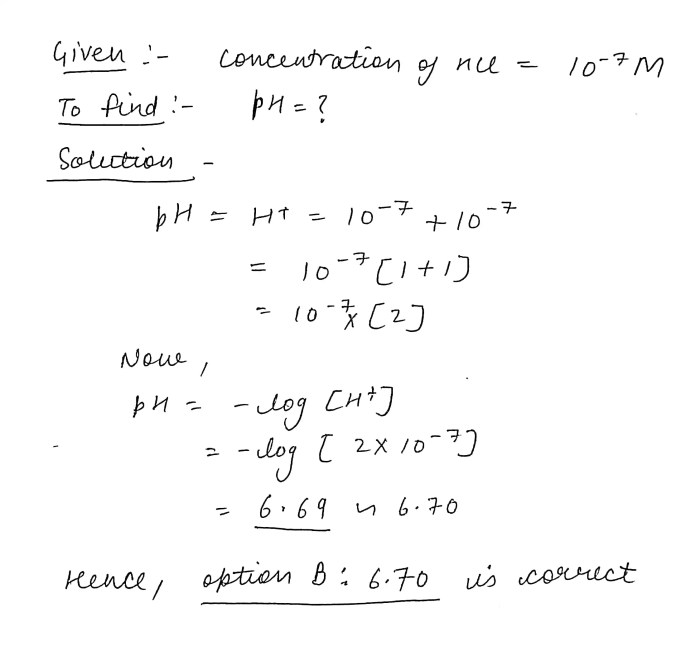 Given :- Concentration of HCl = 10⁻⁷ M
To find :- pH = ?
Solution -
pH = H⁺ = 10⁻⁷ + 10⁻⁷
= 10⁻⁷ [1+1]
= 10⁻⁷ x [2]
Now,
pH = -log [H⁺]
= -log [ 2 x 10⁻⁷]
= 6.69 ~ 6.70
Hence, option B : 6.70 is correct